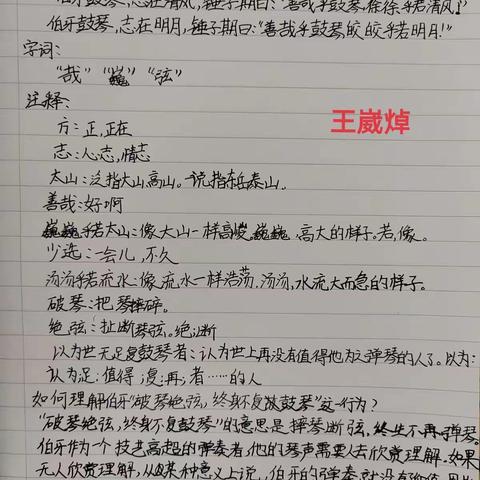 伯牙鼓琴,志在清风,锤子期曰:"善哉乎鼓琴,徐徐乎若清风!"
伯牙鼓琴,志在明月,锤子期曰:"善哉乎鼓琴,皎皎乎若明月!"
字词:
"哉" "巍" "弦"
注释:
王崴焯
方:正,正在
志:心志,情志
太山:泛指大山,高山。一说指东岳泰山。
善哉:好啊
巍巍乎若太山:像大山一样高峻,巍巍,高大的样子。若,像。
少选:一会儿,不久
汤汤乎若流水:像流水一样浩荡,汤汤,水流大而急的样子。
破琴:把琴摔碎。
绝弦:扯断琴弦。绝,断
以为世无足复鼓琴者:认为世上再没有值得他为之弹琴的人了。以为:
认为 足:值得 复:再;者……的人
如何理解伯牙"破琴绝弦,终身不复鼓琴"这一行为?
"破琴绝弦,终身不复鼓琴"的意思是摔琴断弦,终生不再弹琴。
伯牙作为一个技艺高超的弹奏者,他的琴声需要人去欣赏理解,如果
无人欣赏理解,从某种意义上说,伯牙的弹奏就没有